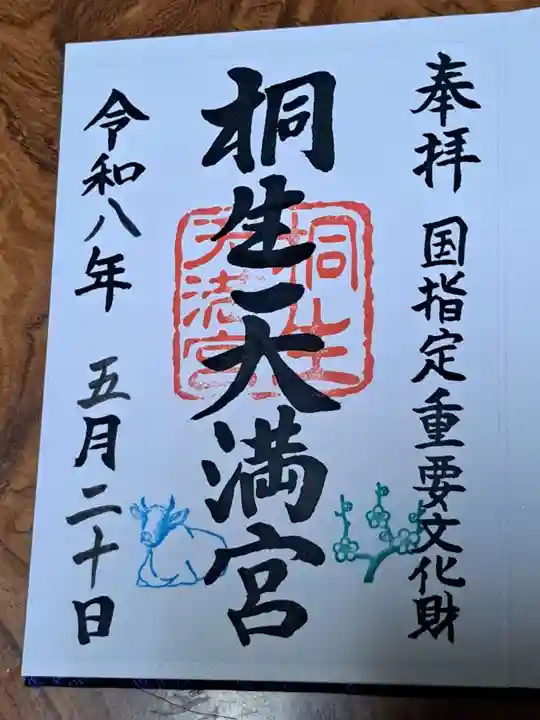 奉拝 国指定重要文化財
桐生天満宮
桐生
天満宮
令和八年 五月二十日